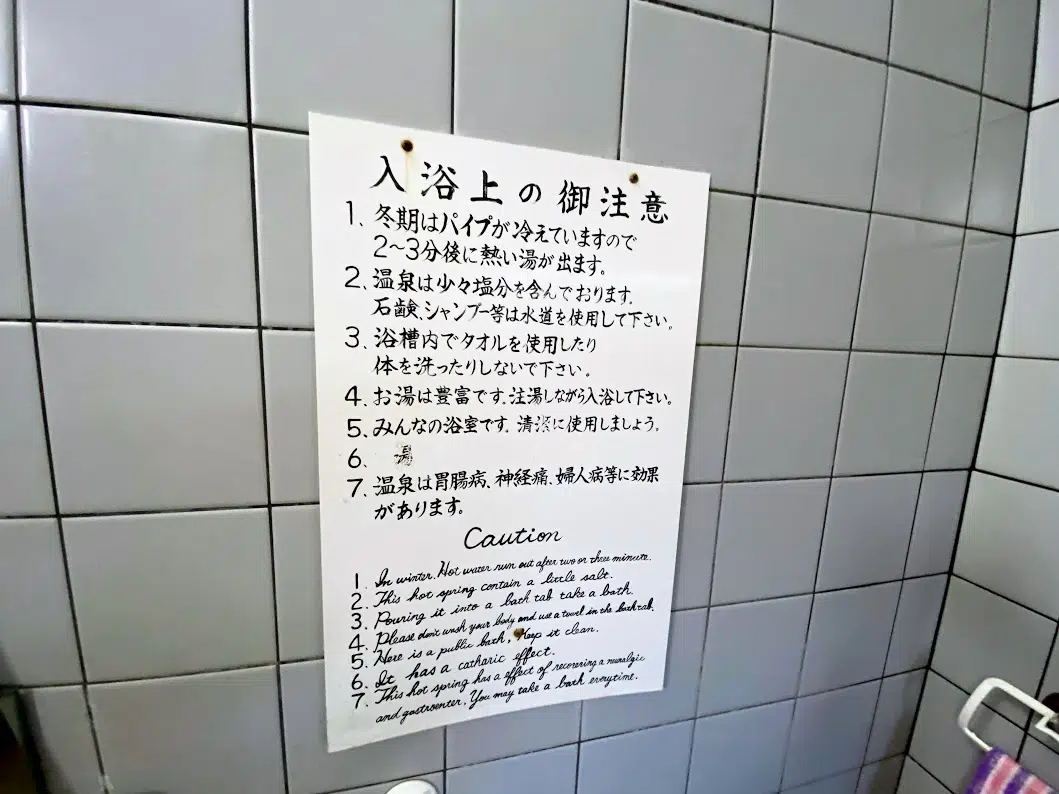 入浴上の御注意
1. 冬期はパイプが冷えていますので
2～3分後に熱い湯が出ます。
2. 温泉は少々塩分を含んでおります。
石鹸、シャンプー等は水道を使用して下さい。
3. 浴槽内でタオルを使用したり
体を洗ったりしないで下さい。
4. お湯は豊富です。注湯しながら入浴して下さい。
5. みんなの浴室です。清潔に使用しましょう。
6. 湯
7. 温泉は胃腸病、神経痛、婦人病等に効果
があります。
Caution
1. In winter. Hot water run out after two or three minute.
2. This hot spring contain a little salt.
3. Pouring it into a bath tab take a bath.
4. Please don't wash your body and use a towel in the bath tab.
5. Here is a public bath, Keep it clean.
6. It has a catharic effect.
7. This hot spring has a effect of recorering a neuralgic
and gastroenter. You may take a bath evrytime.